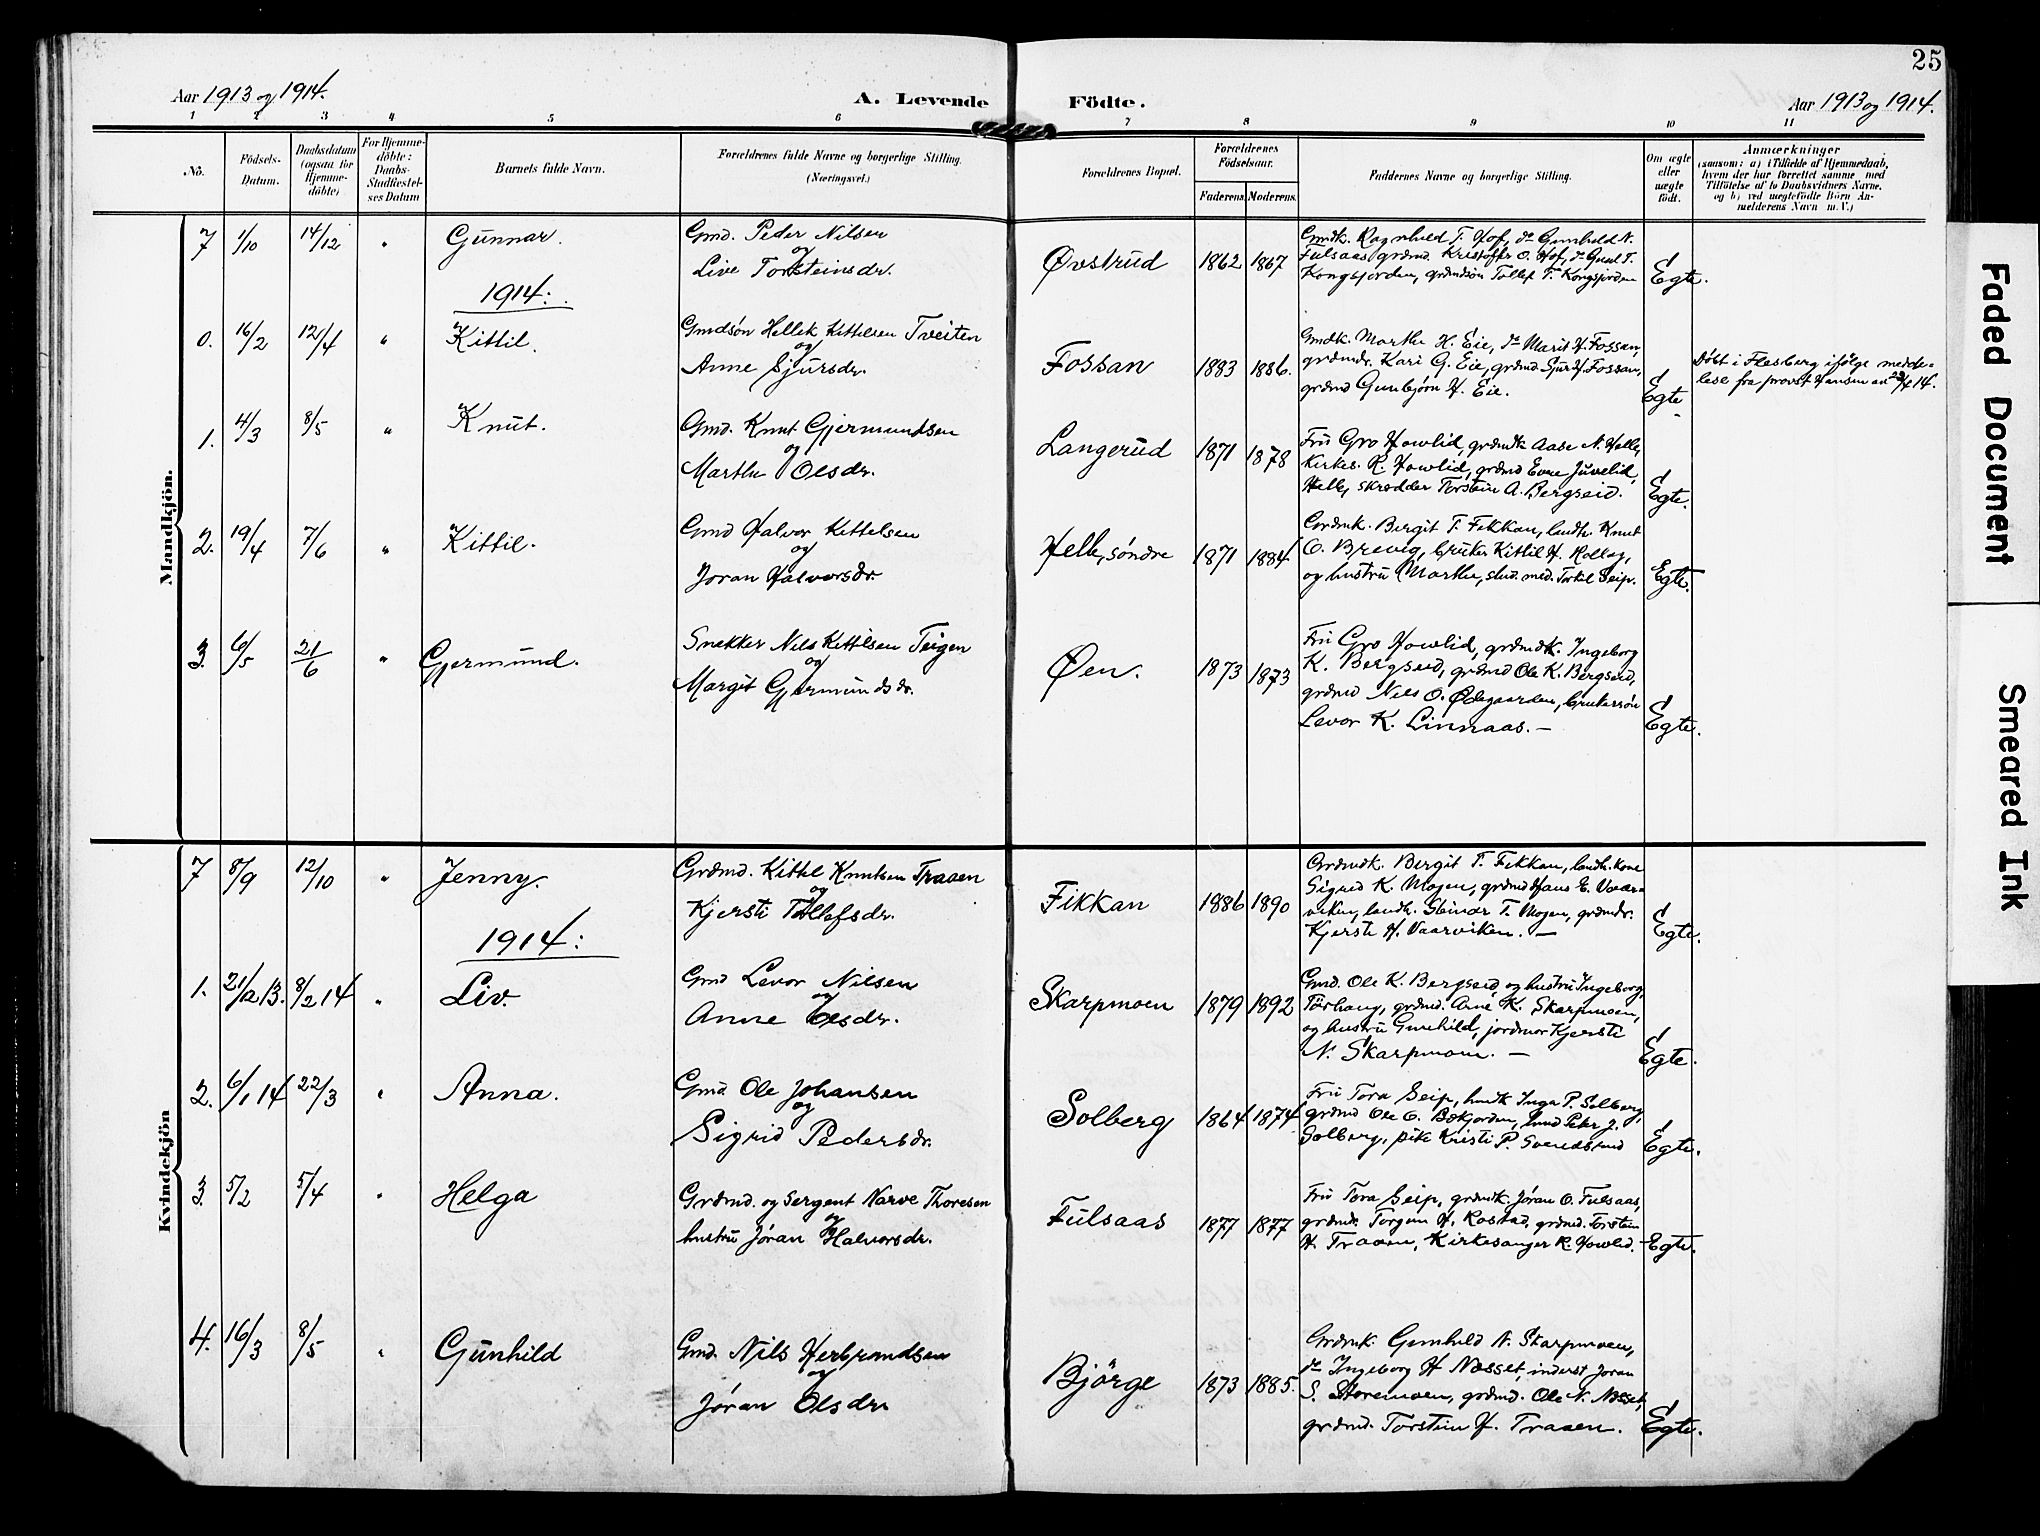 25
Aar 1913 og 1914.
A. Levende Födte.
Aar 1913 og 1914.
1 2 3 4 5 6 7 8 9 10 11
No.
Födsels-Datum.
Daabsdatum (ogsaa for Hjemme-döbte)
For Hjemme-döbte: Daabs-Stadfæstel-ses Datum
Barnets fulde Navn.
Forældrenes fulde Navne og borgerlige Stilling. (Næringsvei.)
Forældrenes Bopæl.
Forældrenes Födselsaar.
Faderens. Moderens.
Faddernes Navne og borgerlige Stilling.
Om ægte eller uægte födt.
Anmærkninger
(saasom: a) i Tilfælde af Hjemmedaab,
hvem der har forrettet samme, med
Tilföielse af to Daabsvidners Navne,
og b) ved uægtefödte Börn An-
melderens Navn m. V.)
Mandkjön.
7 1/10 14/12 " Gunnar.
Gmd. Peder Nilsen
og
Live Torsteinsdr.
Øvstrud 1862 1867
Gmdk. Ragnhild T. Hof, do Gunhild N.
Fulsaas grdmd. Kristoffer O. Hof, do Gunl T.
Kongsjorden, grdmdsön Tollef T. Kongsjorden
Egte.
1914:
0. 16/2 12/4 " Kittil.
Gmdsøn Hellek Kittelsen Tveiten
og
Anne Sjursdr.
Fossan 1883 1886.
Gmdk. Marthe H. Eie, do Marit H. Fossan,
grdmdr. Kari G. Eie, grdmd. Sjur H. Fossan,
grdmd Gunbjørn H. Eie.
Egte
Döbt i Flesberg ifølge medde-
lese fra provst Hansen av
1. 4/3 8/5 " Knut.
Gmd. Knut Gjermundsen
og
Marthe Olsdr.
Langerud 1871 1878
Fru Gro Howlid, grdmdk Aase N. Helle,
Kirkes. R. Howlid, grdmd Even Juvelid,
Helle, skrædder Torstein A. Bergseid.
Egte.
2. 19/4 7/6 " Kittil.
Gmd Halvor Kittelsen
og
Joran Halvorsdr.
Helle, søndre 1871 1884
Grdmk. Bergit T. Fekkan, landh. Knut
O. Brevig, bruker Kittil H. Rollag,
og hustru Marthe, stud. med. Torkil Seip.
Egte.
3. 6/5 21/6 " Gjermund.
Snekker Nils Kittilsen Teigen
og
Margit Gjermundsdr.
Øen. 1873 1873
Fru Gro Howlid, grdmdk. Ingeborg
K. Bergseid, grdmd Ole K. Bergseid,
grdmd Nils O. Ødegaarden, brukersøn
Levor K. Linnaas. —
Egte.
Kvindekjön
7 8/9 12/10 " Jenny.
Grdmd. Kittel Knutsen Traaen
og
Kjersti Tollefsdr.
Fikkan 1886 1890
Grdmdk. Bergit T. Fekkan, landh. kone
Sigrid K. Mogen, grdmd Hans E. Vaar-
viken, landh. Steinar T. Mogen, grdmdr.
Kjersti H. Vaarviken. —
Egte.
1914:
1. 21/12 13. 8/2 14 " Liv.
Gmd Levor Nilsen
og
Anne Olsdr.
Skarpmoen 1879 1892
Gmd. Ole K. Bergseid og hustru Ingeborg,
grdmd. Arne K. Skarpmoen,
og hustru Gunhild, jordmor Kjersti
N. Skarpmoen. —
Egte.
2. 6/1 14 22/3 " Anna.
Gmd. Ole Johansen
og
Sigrid Pedersdr.
Solberg 1864 1874
Fru Tora Seip, Inga P. Solberg,
grdmd Ole O. Bækjorden, Peter J.
Solberg, pike Kristi P. Svendsrud
Egte.
3. 5/2 5/4 " Helga
Grdmd. og Sergent Narve Thoresen
og
hustru Jøran Halvorsdr.
Fulsaas 1877 1877
Fru Tora Seip, grdmdk. Jøran O. Fulsaas,
grdmdk. Torgun H. Rostad, grdmd. Torstein
H. Traaen, Kirkesanger R. Howlid.
Egte.
4. 16/3 8/5 " Gunhild
Gmd. Nils Herbrandsen
og
Jøran Olsdr
Bjørge 1873 1885.
Grdmk. Gunhild N. Skarpmoen,
do Ingeborg H Næsset, inderst Joran
S. Storemoen, grdmd. Ole N. Næsset,
grdmd. Torstein H. Traaen.
Egte.
Faded Document
Smeared Ink